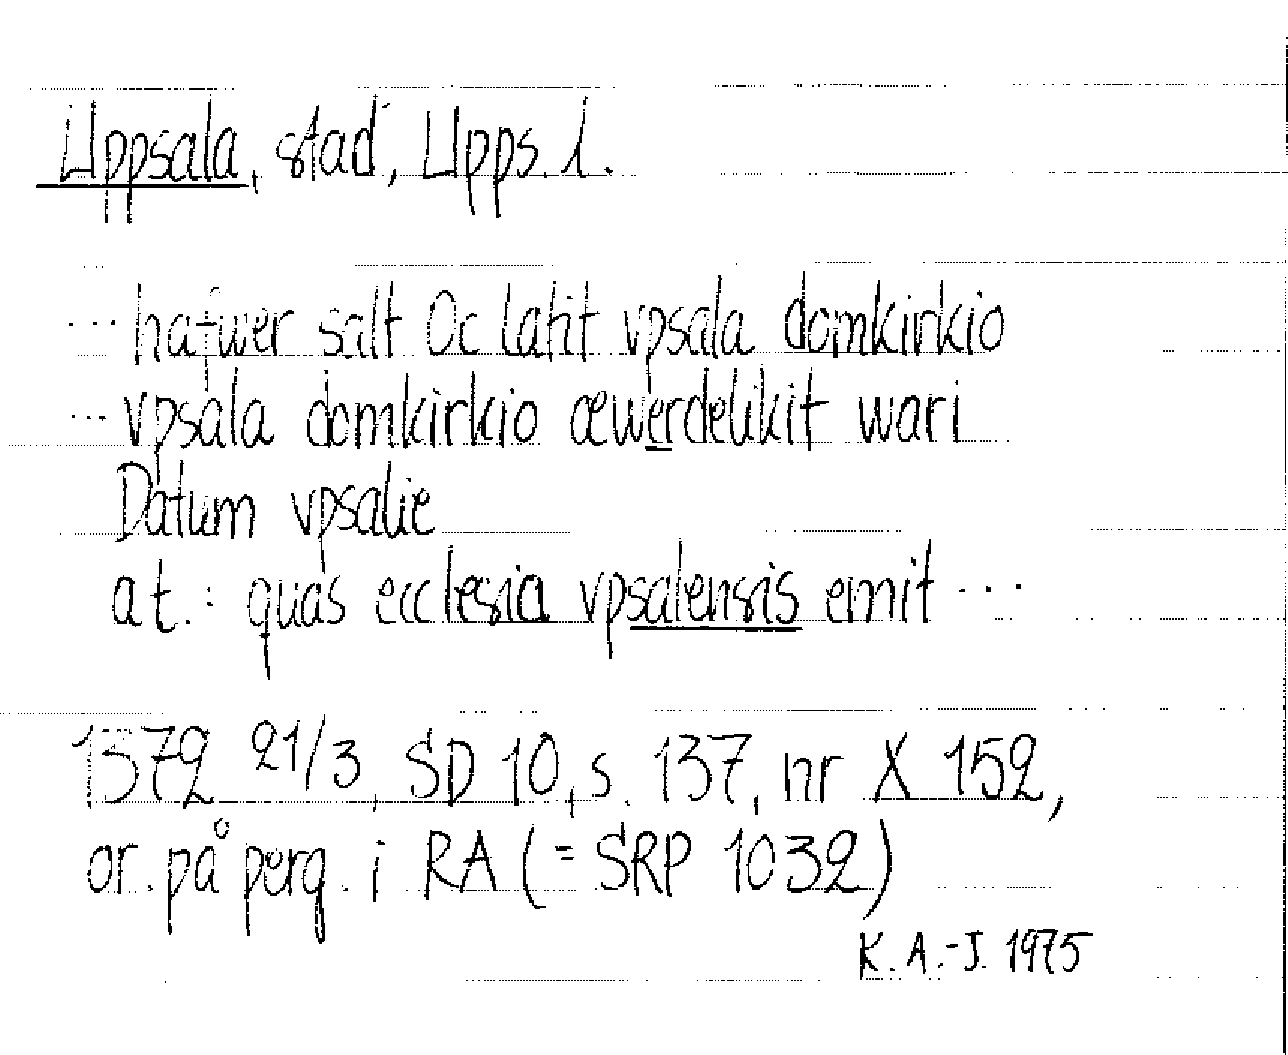 Uppsala, stad, Upps. l.
... hafwer salt Oc latit vpsala domkirkio
... vpsala domkirkio æwerdelikit wari
Datum vpsalie
at.: quas ecclesia vpsalensis emit ...
1372 21/3, SD 10, s. 137, nr X 152,
or. på perg. i RA (= SRP 1032)
K. A.-J. 1975